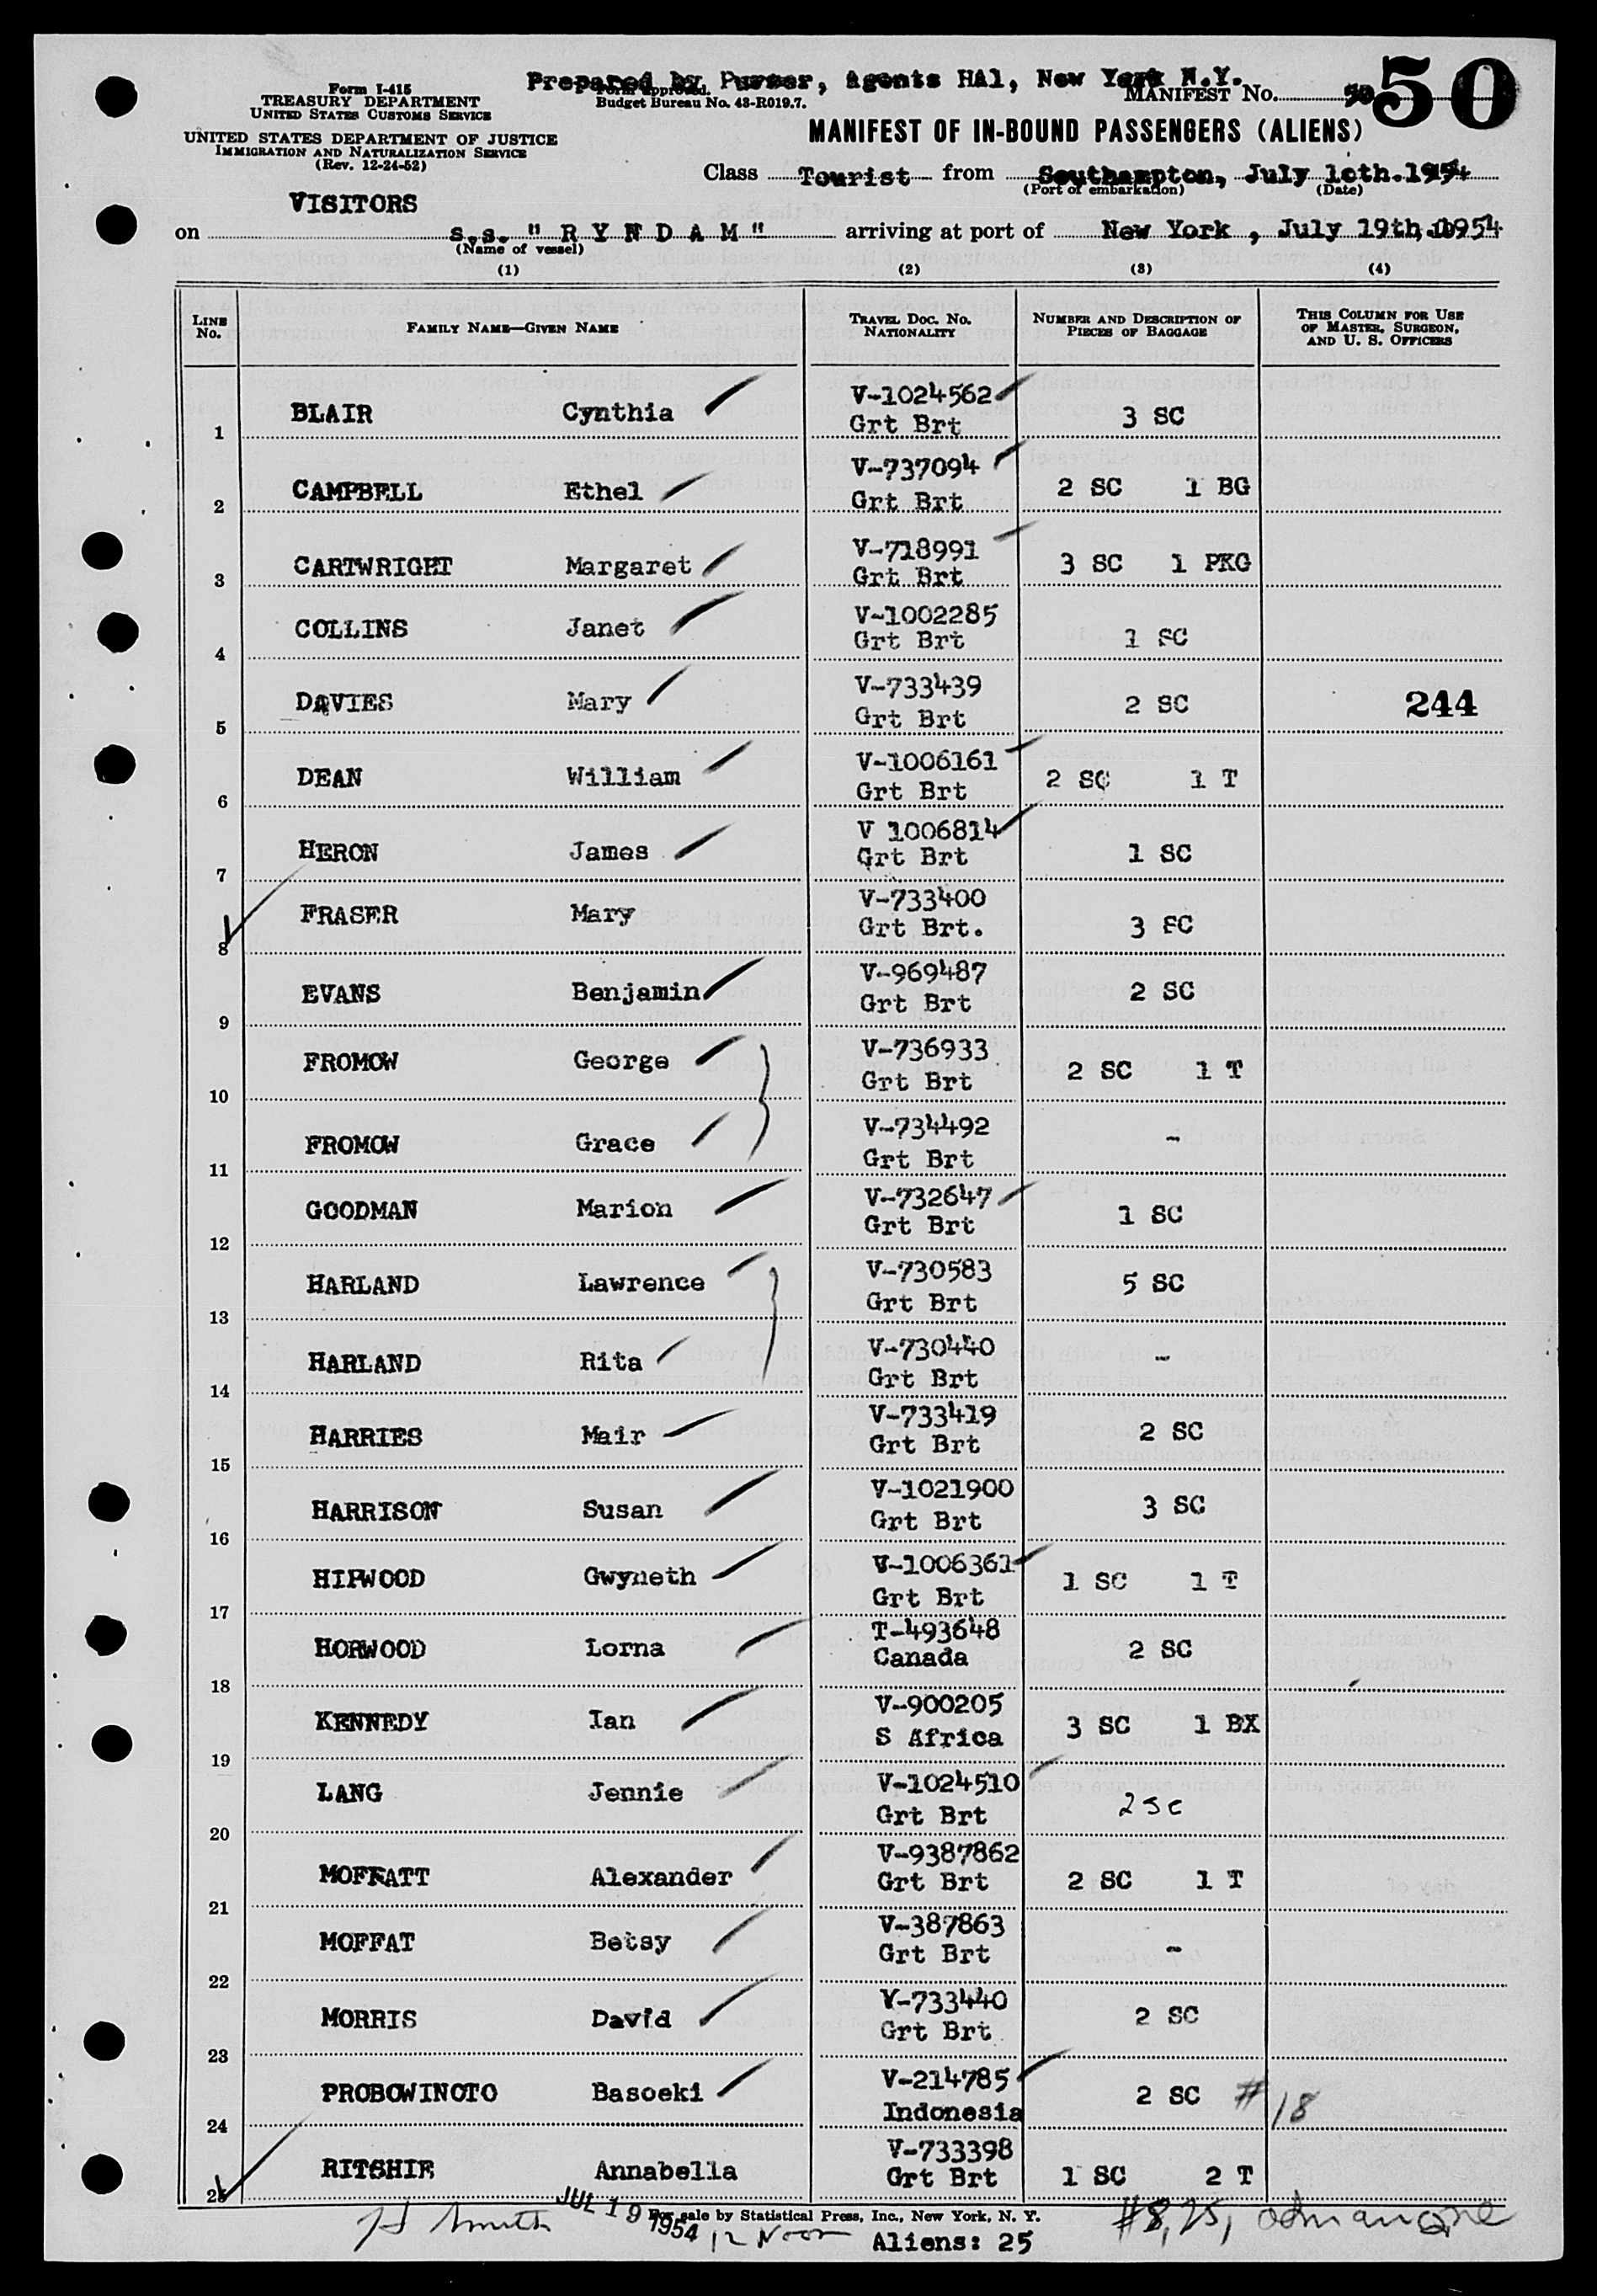 Prepared by Purser, Agents HAl, New York N.Y.
Form I-415
TREASURY DEPARTMENT
UNITED STATES CUSTOMS SERVICE
Form approved.
Budget Bureau No. 43-R019.7.
MANIFEST No. 50
50
UNITED STATES DEPARTMENT OF JUSTICE
IMMIGRATION AND NATURALIZATION SERVICE
(Rev. 12-24-52)
MANIFEST OF IN-BOUND PASSENGERS (ALIENS)
Class Tourist from Southampton, July 10th.1954
(Port of embarkation) (Date)
VISITORS
on s.s. " R Y N D A M " arriving at port of New York , July 19th, 1954
(Name of vessel)
(1) (2) (3) (4)
LINE No. FAMILY NAME—GIVEN NAME TRAVEL DOC. NO. NATIONALITY NUMBER AND DESCRIPTION OF PIECES OF BAGGAGE THIS COLUMN FOR USE OF MASTER, SURGEON, AND U. S. OFFICERS
1 BLAIR Cynthia V-1024562 Grt Brt 3 SC
2 CAMPBELL Ethel V-737094 Grt Brt 2 SC 1 BG
3 CARTWRIGHT Margaret V-718991 Grt Brt 3 SC 1 PKG
4 COLLINS Janet V-1002285 Grt Brt 1 SC
5 DAVIES Mary V-733439 Grt Brt 2 SC 244
6 DEAN William V-1006161 Grt Brt 2 SC 1 T
7 HERON James V 1006814 Grt Brt 1 SC
8 FRASER Mary V-733400 Grt Brt. 3 SC
9 EVANS Benjamin V-969487 Grt Brt 2 SC
10 FROMOW George V-736933 Grt Brt 2 SC 1 T
11 FROMOW Grace V-734492 Grt Brt -
12 GOODMAN Marion V-732647 Grt Brt 1 SC
13 HARLAND Lawrence V-730583 Grt Brt 5 SC
14 HARLAND Rita V-730440 Grt Brt -
15 HARRIES Mair V-733419 Grt Brt 2 SC
16 HARRISON Susan V-1021900 Grt Brt 3 SC
17 HIPWOOD Gwyneth V-1006361 Grt Brt 1 SC 1 T
18 HORWOOD Lorna T-493648 Canada 2 SC
19 KENNEDY Ian V-900205 S Africa 3 SC 1 BX
20 LANG Jennie V-1024510 Grt Brt 2 SC
21 MOFFATT Alexander V-9387862 Grt Brt 2 SC 1 T
22 MOFFAT Betsy V-387863 Grt Brt -
23 MORRIS David V-733440 Grt Brt 2 SC
24 PROBOWINOTO Basoeki V-214785 Indonesia 2 SC # 18
25 RITSHIE Annabella V-733398 Grt Brt 1 SC 2 T
For sale by Statistical Press, Inc., New York, N. Y.
H Smith JUL 19 1954 12 Noon #8, 25,
Aliens: 25